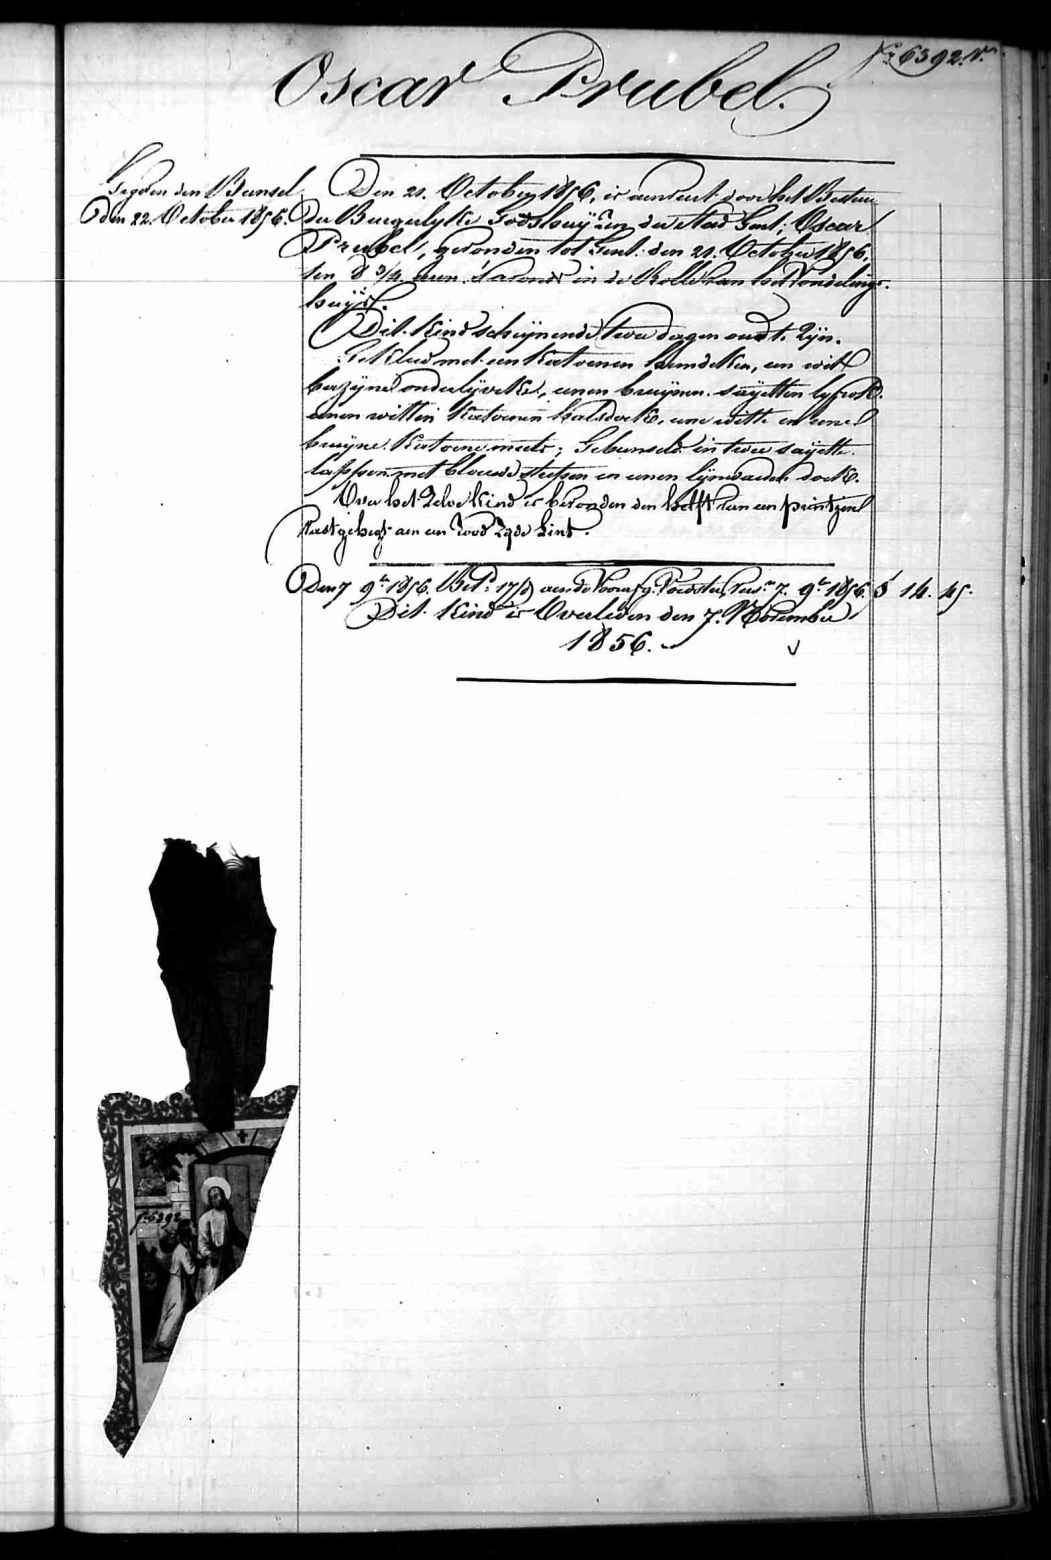 Nº 6392. Vn.
Oscar Prubel.
Gegeven den Bunsel
den 22. October 1856.
Den 21. October 1856, is aenveert door het Bestuer
der Burgerlyke Godshuyzen der stad Gent; Oscar
Prubel, gevonden tot Gent den 21. October 1856,
ten 8 3/4 uren 's avonds in de Rolle van het Vondelings-
huys.
Dit Kind scheynende twee dagen oudt Zyn.
Gekleed met een Katoenen hemdeken, een wit
bazyne onderlyveke, eenen bruynen sayetten lyfrok.
eenen witten Katoenen halsdoek, eene witte en eene
bruyne Katoene muts; Gebunseld in twee sayette
lappen met blauwe streepen en eenen lynwaeden doek.
Over het Zelve Kind is bevonden den helft van een printzeel
vastgehegt aen een rood Zyde Lint.
Den 7 9br 1856. Betd. aen de Voorsz. Voedster, 7. 9br 1856. 5 14. 45.
Dit Kind is Overleden den 7. November
1856.
Nº 6392